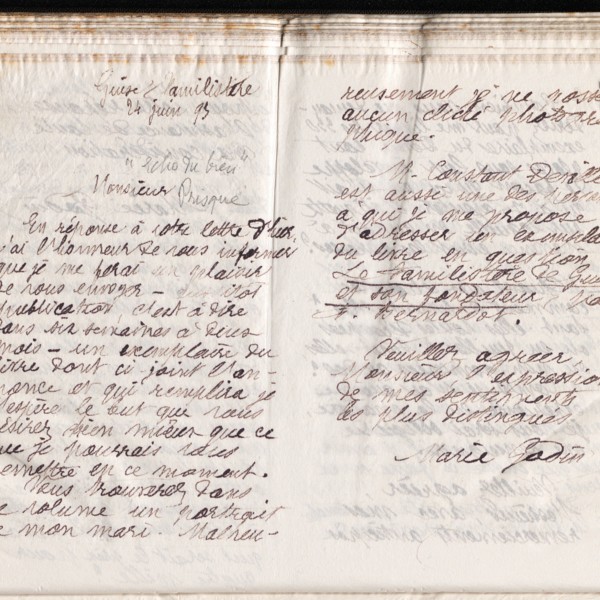 Guise Familistère
24 juin 93
"Echo du bien"
Monsieur Prisque
En réponse à votre lettre d'hier
j'ai l'honneur de vous informer
que je me ferai un plaisir
de vous envoyer -
publication, c'est à dire
dans six semaines à deux
mois - un exemplaire du
titre dont ci-joint l'an-
nonce et qui remplira je
l'espère le but que vous
désirez bien mieux que ce
que je pourrais vous
remettre en ce moment.
Vous trouverez dans
ce volume un portrait
de mon mari. Malheu-
reusement je ne possè
aucun cliché photogra
phique.
M. Constant
est aussi une des person
à qui je me propose
d'adresser un exemplai
du livre en question
Le Familistère de Gui
et son fondateur,
F. Bernardot.
Veuillez agréer,
Monsieur l'expression
de mes sentiments
les plus distingués
Marie Godin